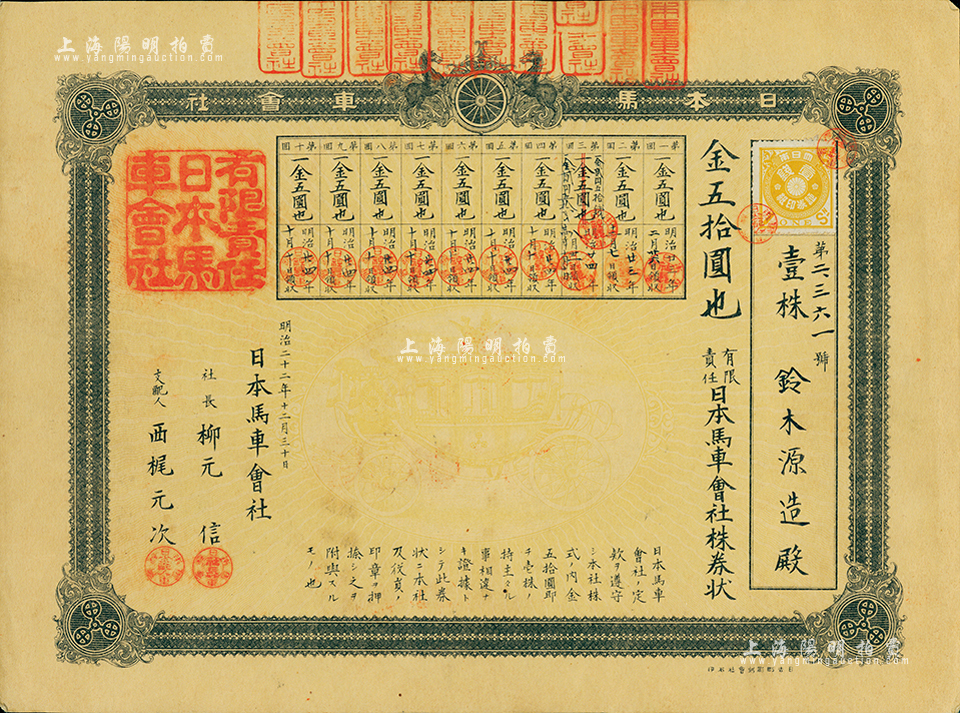 上海陽明拍賣
www.yangmingauction.com
日本馬車會社
第二、三六一號
壹株 鈴木源造殿
金五拾圓也
有限責任日本馬車會社株券状
第一回
一金五圓也
第二回
一金五圓也
明治廿三年
第三回
第四回
一金五圓也
第五回
一金五圓也
明治廿四年
十月十日領収
第六回
一金五圓也
明治廿四年
十月十日領収
第七回
一金五圓也
明治廿四年
十月十日領収
第八回
一金五圓也
明治廿四年
十月十日領収
第九回
一金五圓也
明治廿四年
十月十日領収
第十回
一金五圓也
明治廿四年
十月十日領収
有限責任
日本馬
車會社
上海陽明拍賣
www.yangmingauction.com
日本馬車
會社ノ定
款ヲ遵守
シ本社株
式ノ内金
五拾圓即
チ壱株ノ
持主タル
事相違ナ
キ證據ト
シテ此券
状ニ本社
及役員ノ
印章ヲ押
捺シ之ヲ
附與スル
モノ也
明治二十二年十二月三十日
日本馬車會社
社長 柳元信
支配人 西梶元次
上海陽明拍賣
www.yangmingauction.com